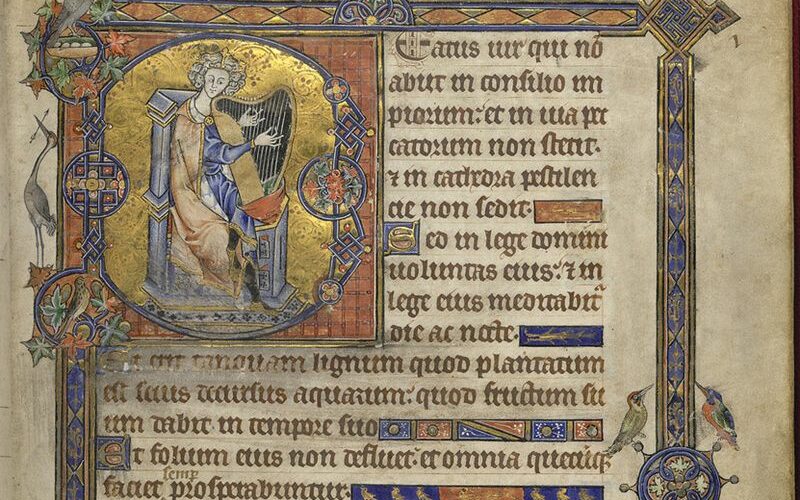 1
BEatus uir qui nō
abiit in consilio im
piorum: et in uia pec
catorum non stetit·
⁊ in cathedra pestilen
cie non sedit·
Sed in lege domini
uoluntas eius: ⁊ in
lege eius meditabit᷑
die ac nocte·
Et erit tanquam lignum quod plantatum
est secus decursus aquarum: quod fructum su
um dabit in tempore suo
Et folium eius non defluet: et omnia quecūqꝫ
semp
faciet prosperabuntur·